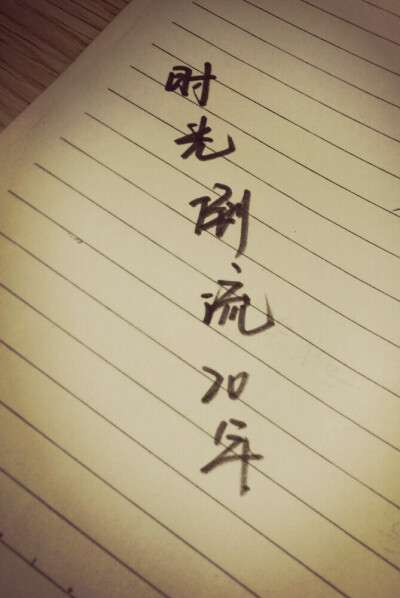 时光倒流20年